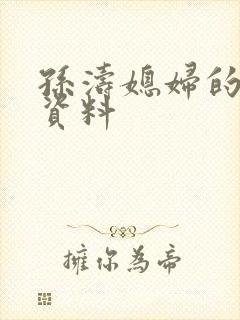 孫濤媳婦的
資料
擁你為帝